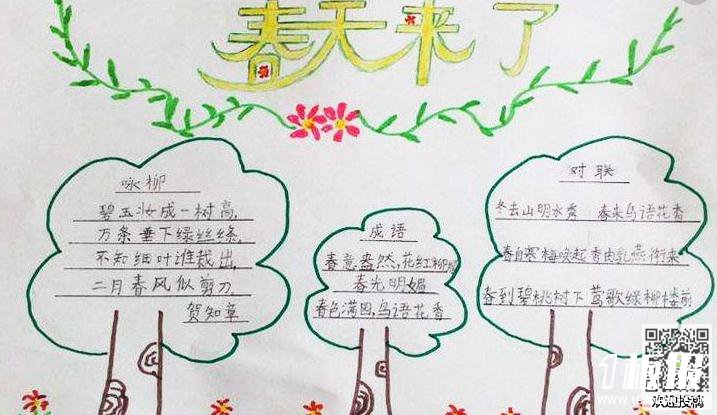 春天来了
咏柳
碧玉妆成一树高,
万条垂下绿丝绦,
不知细叶谁裁出,
二月春风似剪刀
贺知章
成语
春意盎然,花红柳绿
春光明媚
春色满园,鸟语花香
对联
冬去山明水秀 春来鸟语花香
春自寒梅唤起香由乳燕衔来
春到碧桃树下莺歌绿柳楼前
欢迎投稿